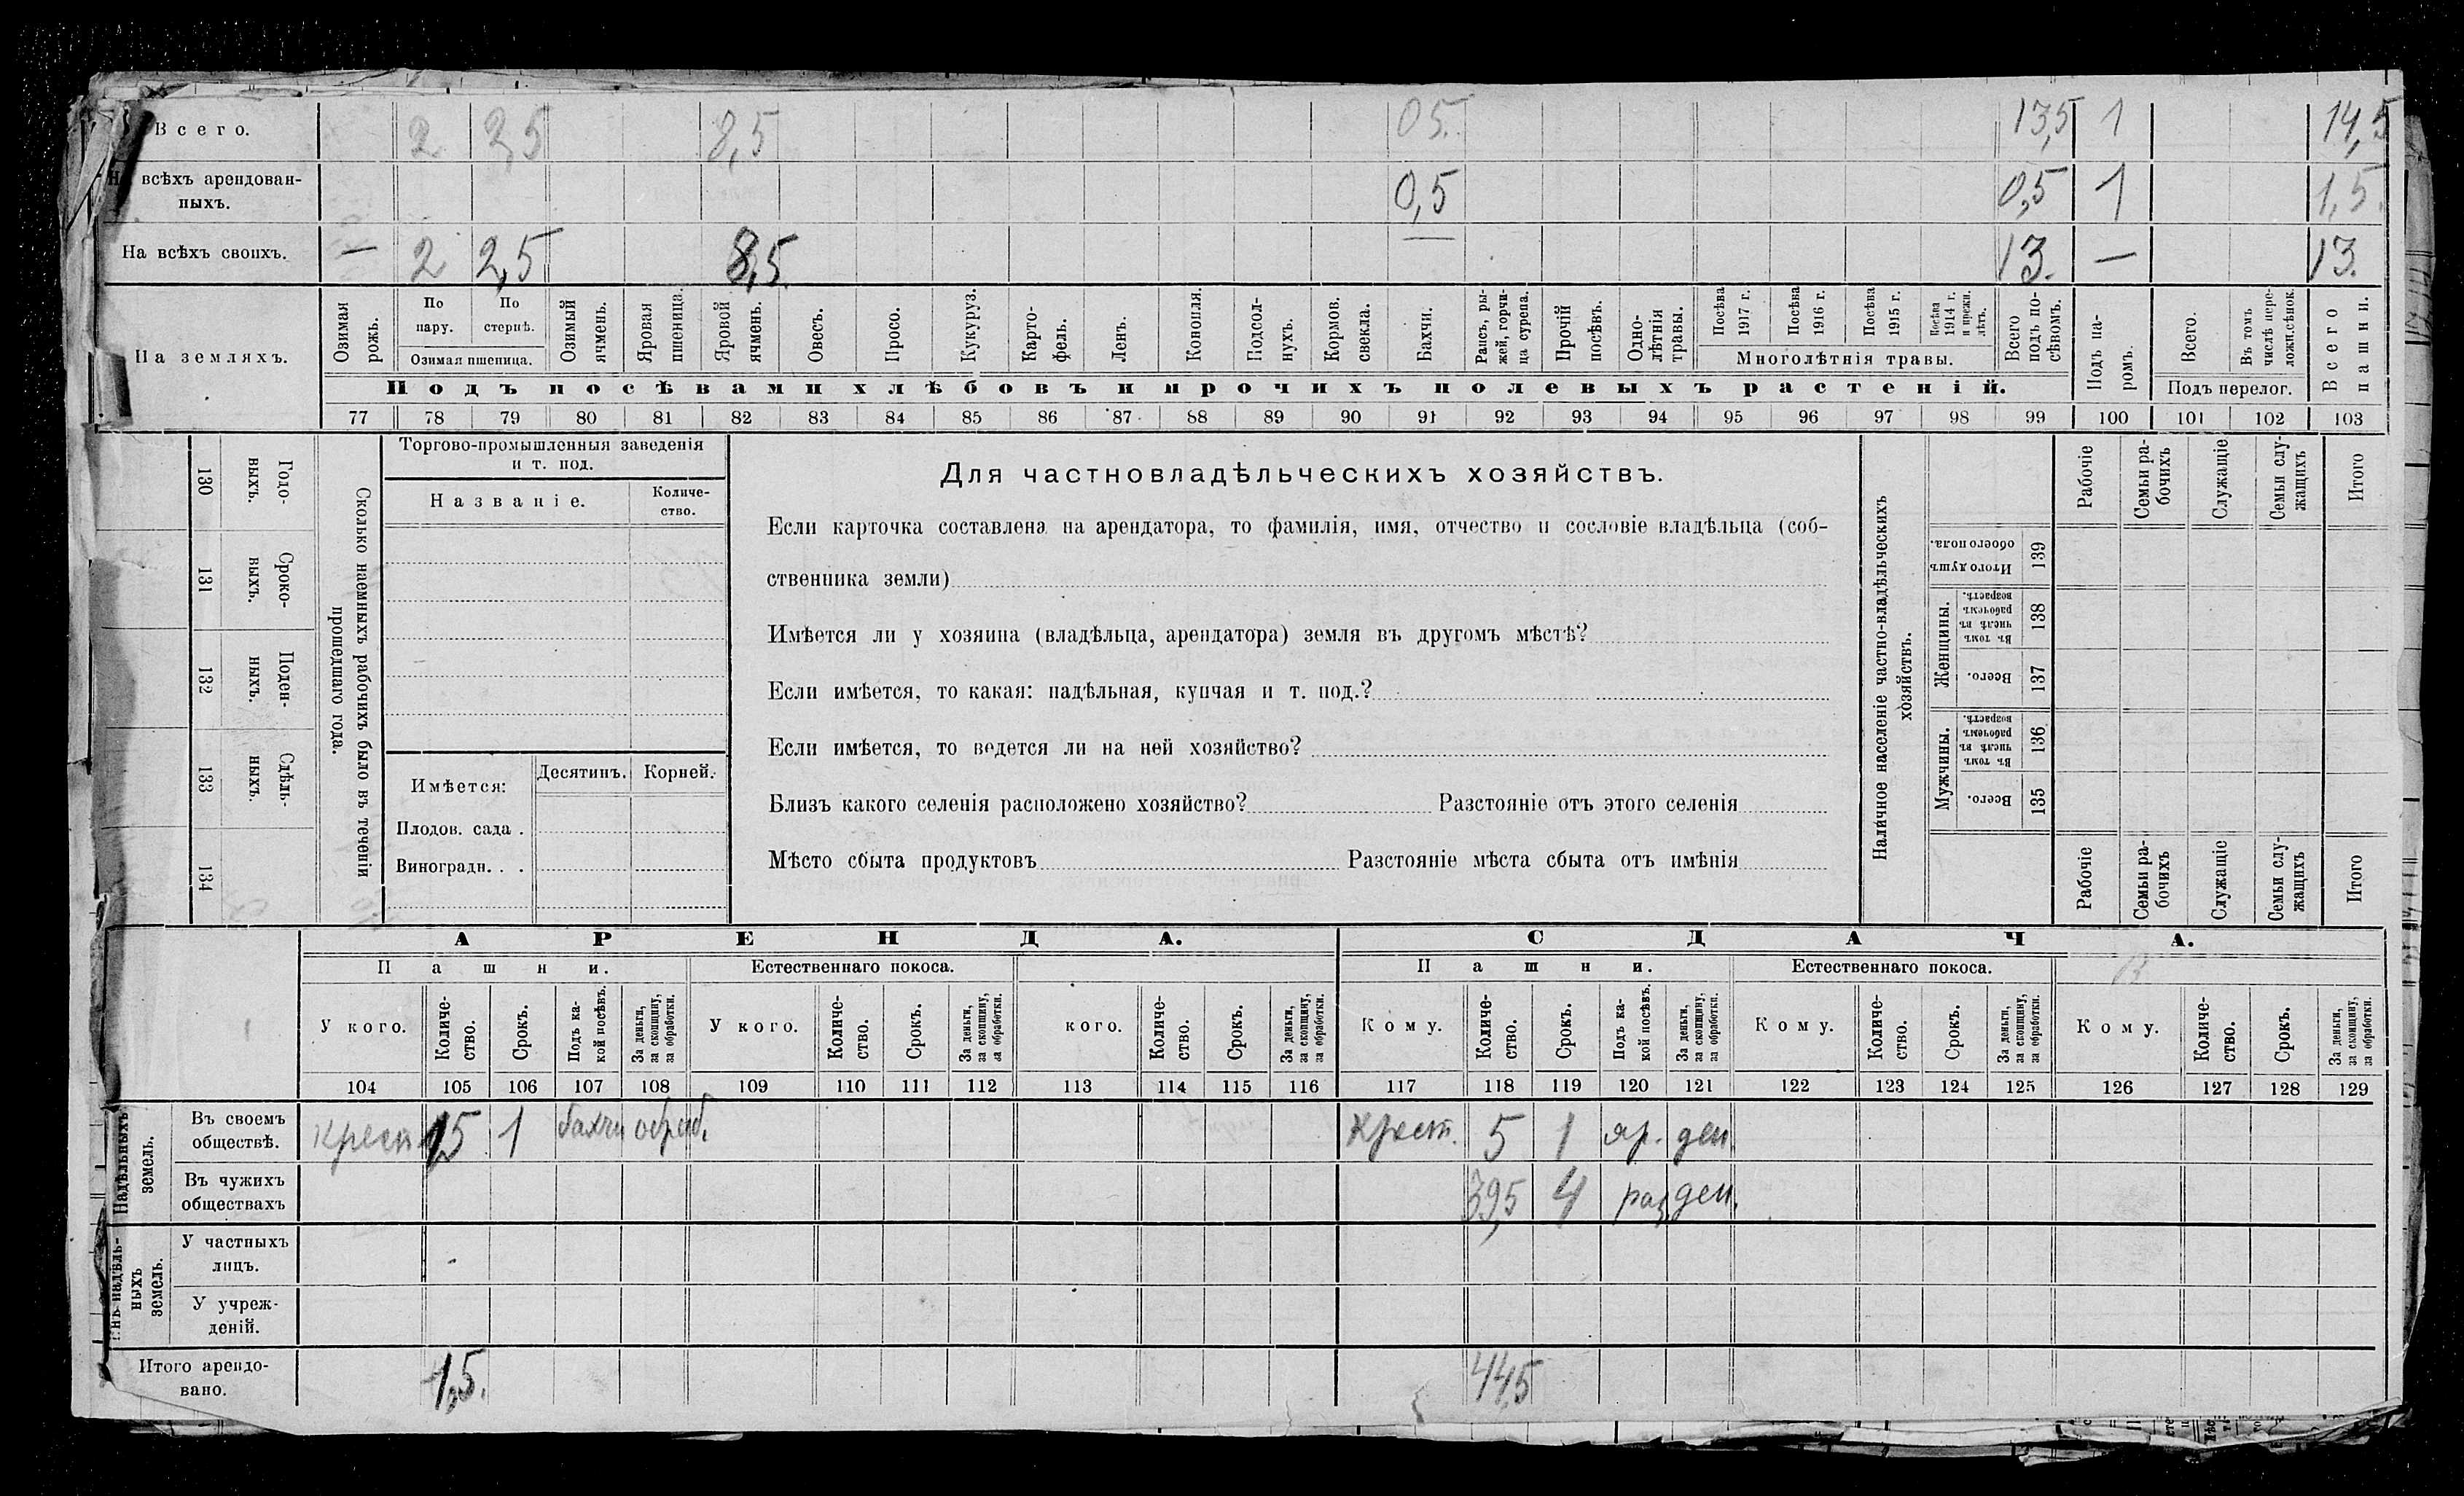 Всего. 2 2,5 8,5 0 5. 13,5 1 14,5
всѣхъ арендован-
ныхъ. 0,5 0,5 1 1,5.
На всѣхъ своихъ. — 2 2,5 8,5. — 13. — 13.
На земляхъ.
Озимая рожь.
По пару.
По стернѣ.
Озимая пшеница.
Озимый ячмень.
Яровая пшеница.
Яровой ячмень.
Овесъ.
Просо.
Кукуруз.
Карто-
фель.
Ленъ.
Конопля.
Подсол-
нухъ.
Кормов.
свекла.
Бахчи.
Рапсъ, ры-
жей, горчи-
ца сурепа.
Прочій
посѣвъ.
Одно-
лѣтнія
травы.
Посѣва
1917 г.
Посѣва
1916 г.
Посѣва
1915 г.
Посѣва
1914 г.
и прежн.
лѣтъ.
Многолѣтнія травы.
Всего
подъ по-
сѣвомъ.
Подъ па-
ромъ.
Всего.
Въ томъ
числѣ пере-
ложн.сѣнок.
Подъ перелог.
Всего
пашни.
Подъ посѣвами хлѣбовъ и прочихъ полевыхъ растеній.
77 78 79 80 81 82 83 84 85 86 87 88 89 90 91 92 93 94 95 96 97 98 99 100 101 102 103
130 Годо-
ныхъ.
131 Сроко-
выхъ.
132 Поден-
ныхъ.
133 Сдѣль-
ныхъ.
134
Сколько наемныхъ рабочихъ было въ теченіи
прошедшаго года.
Торгово-промышленныя заведенія
и т. под.
Названіе.
Количе-
ство.
Имѣется:
Десятинъ. Корней.
Плодов. сада .
Виноградн. . .
Для частновладѣльческихъ хозяйствъ.
Если карточка составлена на арендатора, то фамилія, имя, отчество и сословіе владѣльца (соб-
ственника земли)
Имѣется ли у хозяина (владѣльца, арендатора) земля въ другомъ мѣстѣ?
Если имѣется, то какая: надѣльная, купчая и т. под.?
Если имѣется, то ведется ли на ней хозяйство?
Близъ какого селенія расположено хозяйство? Разстояніе отъ этого селенія
Мѣсто сбыта продуктовъ Разстояніе мѣста сбыта отъ имѣнія
Наличное населеніе частно-владѣльческихъ
хозяйствъ.
Рабочіе
Семьи ра-
бочихъ
Служащіе
Семьи слу-
жащихъ
Итого
Итого душъ
обоего пола.
139
Женщины.
Въ томъ
числѣ въ
рабочемъ
возрастѣ.
138
Всего.
137
Мужчины.
Въ томъ
числѣ въ
рабочемъ
возрастѣ.
136
Всего.
135
Рабочіе
Семьи ра-
бочихъ
Служащіе
Семьи слу-
жащихъ
Итого
АРЕНДА. СДАЧА.
Пашни. Естественнаго покоса. Пашни. Естественнаго покоса.
У кого.
Количе-
ство.
Срокъ.
Подъ ка-
кой посѣвъ.
За деньги,
за скопщину,
за обработки.
У кого.
Количе-
ство.
Срокъ.
За деньги,
за скопщину,
за обработки.
кого.
Количе-
ство.
Срокъ.
За деньги,
за скопщину,
за обработки.
Кому.
Количе-
ство.
Срокъ.
Подъ ка-
кой посѣвъ.
За деньги,
за скопщину,
за обработки.
Кому.
Количе-
ство.
Срокъ.
За деньги,
за скопщину,
за обработки.
Кому.
Количе-
ство.
Срокъ.
За деньги,
за скопщину,
за обработки.
104 105 106 107 108 109 110 111 112 113 114 115 116 117 118 119 120 121 122 123 124 125 126 127 128 129
Надѣльныхъ
земель.
Въ своемъ
обществѣ. крест 1,5 1 бахчи обраб. крест. 5 1 яр. ден.
Въ чужихъ
обществахъ 39,5 4 раз. ден.
надѣль-
ныхъ
земель.
У частныхъ
лицъ.
У учреж-
деній.
Итого арендо-
вано. 1,5. 44,5